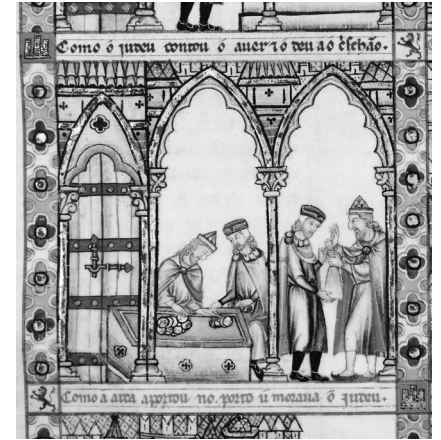 Como o iudeu contou o auer z o deu a o c̃schão.
Como a arca aportou no porto u moraua o iudeu.